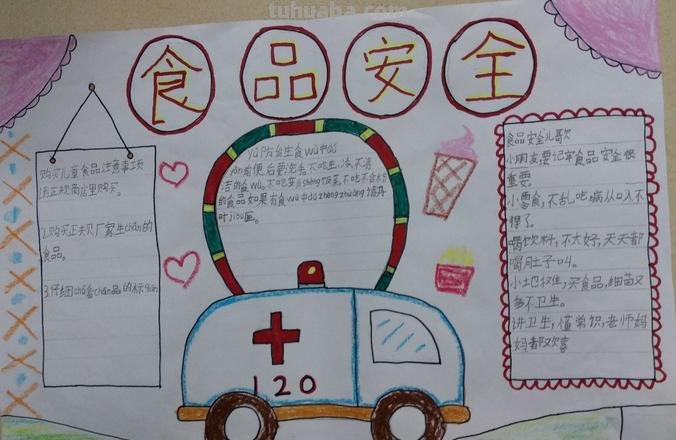 tuhuaba.com
食品安全
购买儿童食品注意事项
1.去正规商店里购买。
2.购买正夫贝厂家生chǎn的
食品。
3.仔细chá看chǎn品的标qiān
yù防食生食wù中dú
前便后要洗手,不吃生、冷、不清
洁的食wù。不吃变
的食品如果有食wù中dú zhèng zhuàng请及
时jiù医。
120
食品安全儿歌
小朋友要记牢食品安全很
重要。
小零食,不乱吃病从口入不
得了。
喝饮料,不太好,天天都
喝肚子叫。
小地摊,买食品,细菌又
多不卫生。
讲卫生,懂常识,老师妈
妈都欢喜